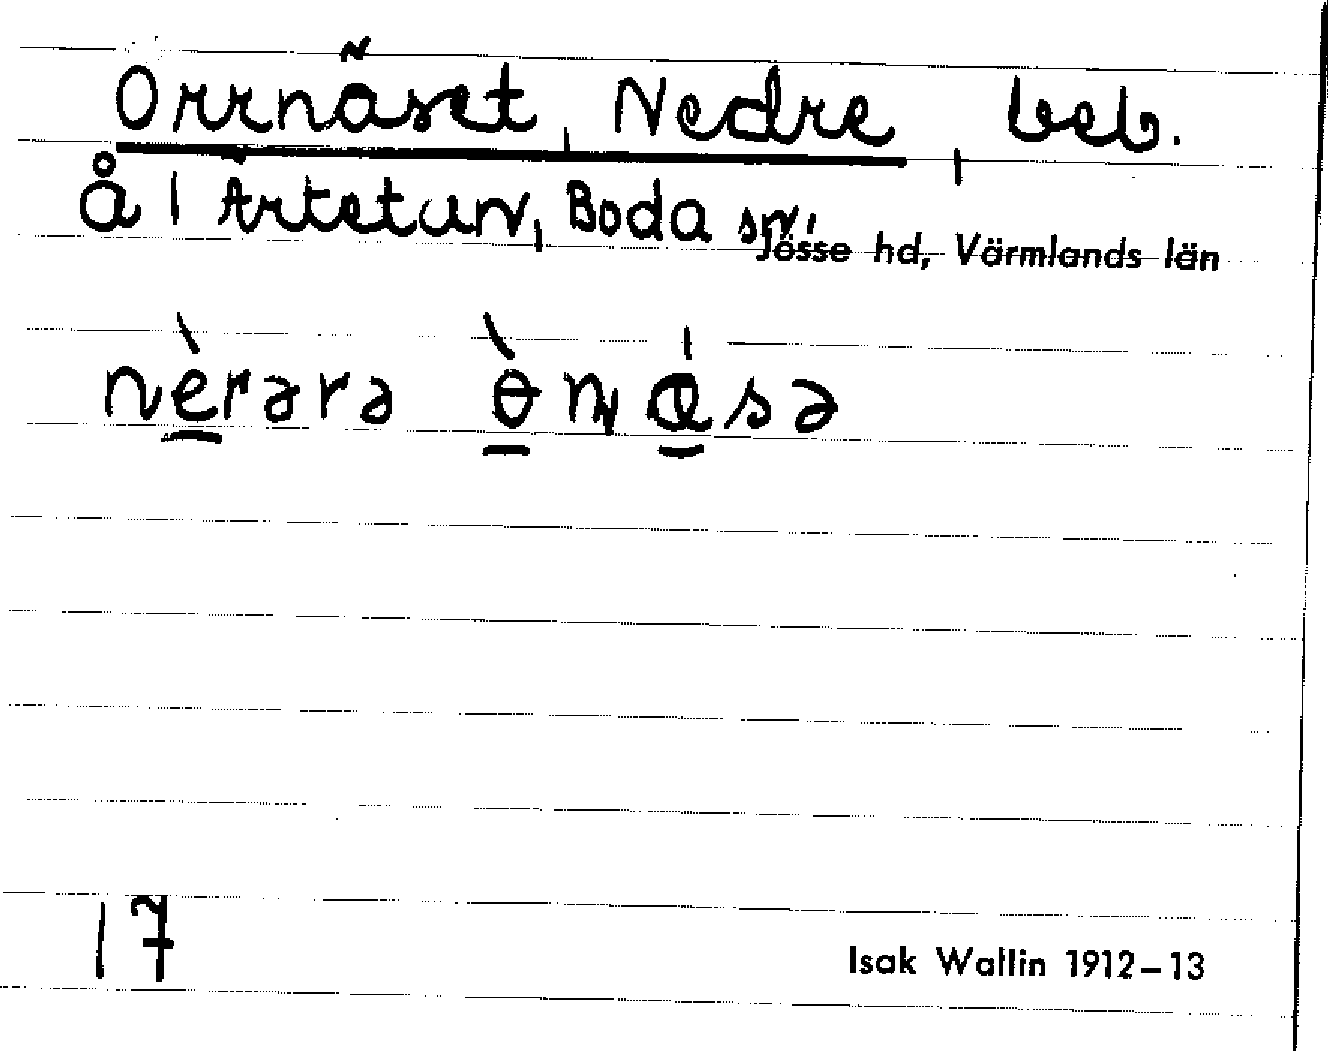 Orrnäset, Nedre, beb.
å Ärtetun, Boda sn,
Jösse hd, Värmlands län
nèrərə ə̀nǽsə
17
Isak Wallin 1912–13